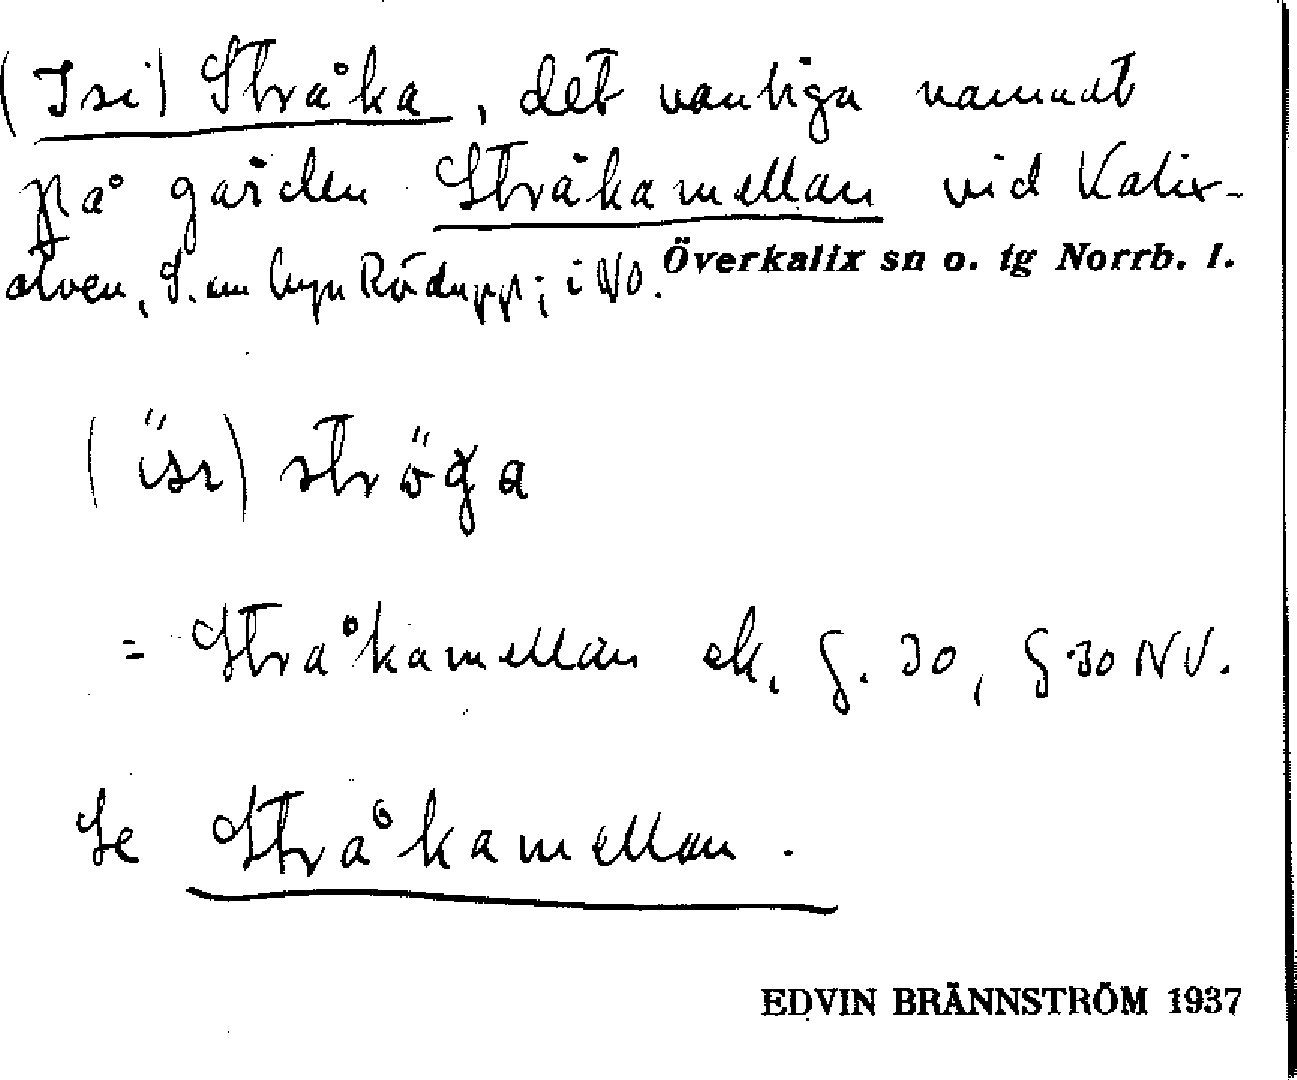 (Isi) Stråka, det vanliga namnet
på gården Stråkamellan vid Kalix-
älven, S. om byn Rödupp; i NO. Överkalix sn o. tg Norrb. l.
(ïsı) ströga
= Stråkamellan ek. § 30, § 30 NV.
Se Stråkamellan.
EDVIN BRÄNNSTRÖM 1937